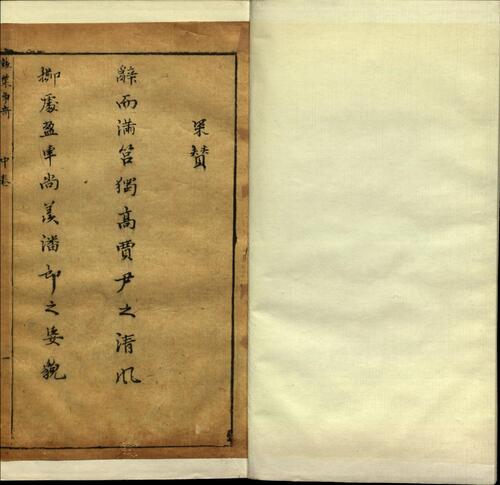 果贊
辭而滿筥獨高賈尹之清風
擲處盈車尚羡潘郎之姿貌
中卷
一